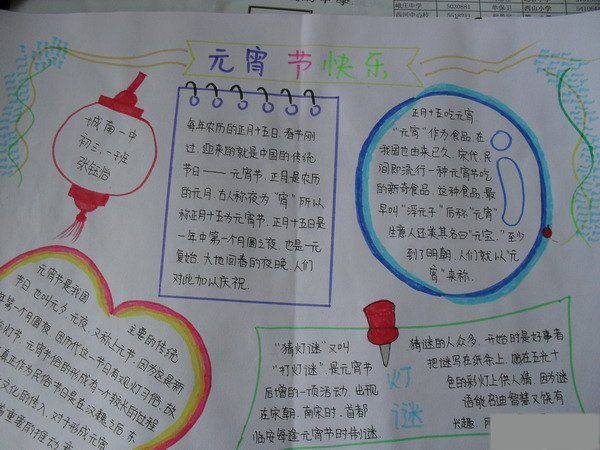 元宵节快乐
城南一中
初三.一班
每年农历的正月十五日.春节刚
过.迎来的就是中国的传统
节日——元宵节.正月是农历
的元月.古人称夜为"宵"所以
称正月十五为元宵节.正月十五日是
一年中第一个月圆之夜.也是一元
复始.大地回春的夜晚.人们
对此加以庆祝.
正月十五吃元宵.
"元宵"作为食品.在
我国也由来已久.宋代.民
间即流行一种元宵节吃
的新奇食品.这种食品.最
早叫"浮元子"后称"元宵"
生意人还美其名曰"元宝."至少
到了明朝.人们就以"元
宵"来称.
元宵节是我国
主要的传统
节日.也叫元夕.元夜.又称上元节.因为这是新
年第一个月圆夜.因历代这一节日有观灯习俗.故
灯节.元宵节俗的形成有一个较长的过程
真正作为民俗节日是在汉魏之后.东
文化的传入.对于形成元宵
有重要的推动
灯谜
"猜灯谜"又叫
"打灯谜".是元宵节
后增的一项活动.出现
在宋朝.南宋时.首都
临安每逢元宵节时制谜.
猜谜的人众多.开始时是好事者
把谜写在纸条上.贴在五光十
色的彩灯上供人猜.因为谜
语能启迪智慧又饶有
兴趣.